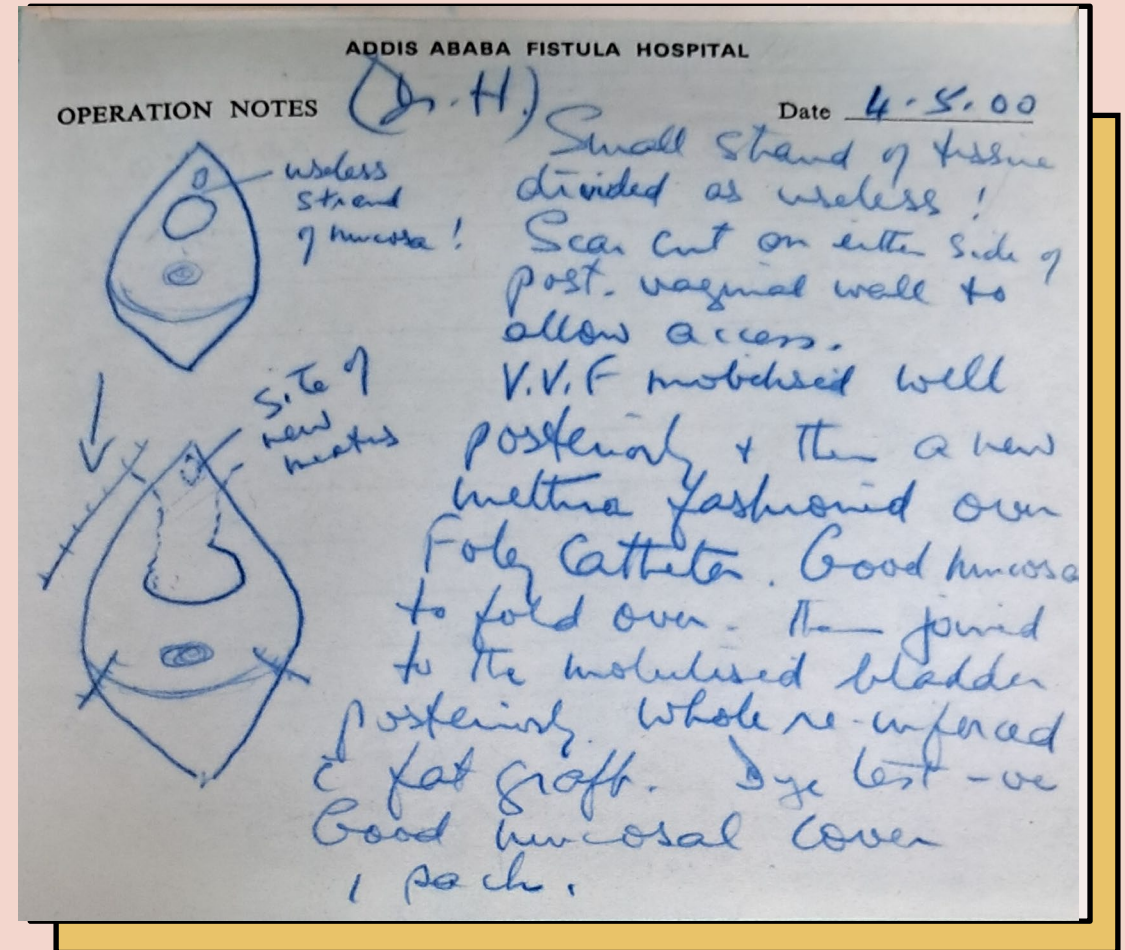 ADDIS ABABA FISTULA HOSPITAL
OPERATION NOTES
(Dr. H.)
Date 4.5.00
useless
strand
of mucosa!
Small strand of tissue
divided as useless!
Scar cut on either side of
post. vaginal wall to
allow access.
site of
new
meatus
V.V.F mobilised well
posteriorly + then a new
urethra fashioned over
Foley Catheter. Good mucosa
to fold over. Then joined
to the mobilised bladder
posteriorly. Whole re-inforced
c̄ fat graft. Dye test -ve
Good mucosal cover
1 pack.